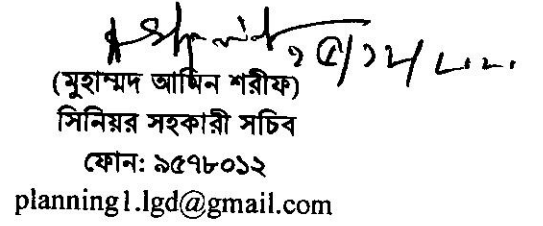 (মুহাম্মদ আমিন শরীফ)
সিনিয়র সহকারী সচিব
ফোন: ৯৫৭৮০১২
planning1.lgd@gmail.com